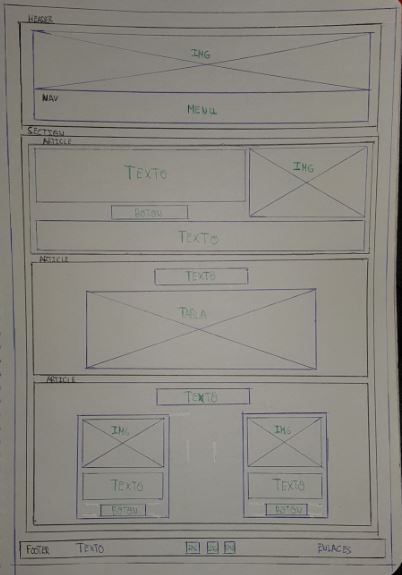 HEADER
IMG
NAV
MENU
SECTION
ARTICLE
TEXTO
IMG
BOTON
TEXTO
ARTICLE
TEXTO
TABLA
ARTICLE
TEXTO
IMG IMG
TEXTO TEXTO
BOTON BOTON
FOOTER TEXTO ENLACES